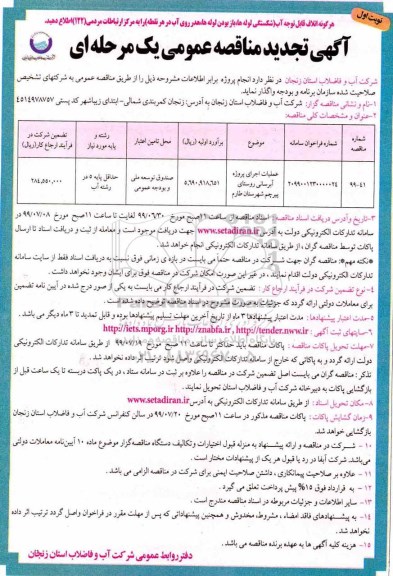 نوبت اول
هرگونه اتلاف قابل توجه آب (شکستگی لوله ها، باز بودن لوله ها، هدر روی آب در هر نقطه) را به مرکز ارتباطات مردمی (۱۲۲) اطلاع دهید.
آگهی تجدید مناقصه عمومی یک مرحله ای
شرکت آب و فاضلاب استان زنجان در نظر دارد انجام پروژه برابر اطلاعات مشروحه ذیل را از طریق مناقصه عمومی به شرکتهای تشخیص
صلاحیت شده سازمان برنامه و بودجه واگذار نماید.
۱-نام و نشانی مناقصه گزار: شرکت آب و فاضلاب استان زنجان به آدرس: زنجان کمربندی شمالی- ابتدای زیباشهر کد پستی ۴۵۱۴۹۷۸۷۵۷
۲-عنوان و مشخصات کلی مناقصه:
شماره مناقصه | شماره فراخوان سامانه | موضوع | برآورد اولیه (ریال) | محل تامین اعتبار | رشته و پایه مورد نیاز | تضمین شرکت در فرآیند ارجاع کار (ریال)
۹۹-۴۱ | ۲۰۹۹۰۰۱۲۳۰۰۰۰۰۲۴ | عملیات اجرای پروژه آبرسانی روستای پیرچم شهرستان طارم | ۵,۶۹۰,۹۱۸,۶۵۱ | صندوق توسعه ملی و بودجه عمومی | حداقل پایه ۵ در رشته آب | ۲۸۴,۵۵۰,۰۰۰
۳-تاریخ و آدرس دریافت اسناد مناقصه: اسناد مناقصه از ساعت ۱۱ صبح مورخ ۹۹/۰۶/۳۰ لغایت تا ساعت ۱۱ صبح مورخ ۹۹/۰۷/۰۸ در
سامانه تدارکات الکترونیکی دولت به آدرس www.setadiran.ir جهت دریافت موجود است و معامله از ثبت و دریافت اسناد تا ارسال
پاکات توسط مناقصه گران، از طریق سامانه تدارکات الکترونیکی انجام خواهد شد.
*نکته مهم*: مناقصه گران جهت شرکت در مناقصه حتما می بایست در بازه ی زمانی فوق نسبت به دریافت اسناد فقط از سایت سامانه
تدارکات الکترونیکی دولت اقدام نمایند، در غیر این صورت امکان شرکت در مناقصه فوق برای ایشان وجود نخواهد داشت.
۴-نوع تضمین شرکت در فرآیند ارجاع کار: تضمین شرکت در فرآیند ارجاع کار می بایست به یکی از صور درج شده در آیین نامه تضمین
برای معاملات دولتی ارائه گردد که جزئیات به صورت مشروح در اسناد مناقصه توضیح داده شده است.
۵-مدت اعتبار پیشنهادها: مدت اعتبار پیشنهادها ۳ ماه از تاریخ آخرین مهلت تسلیم پیشنهادها بوده و قابل تمدید تا ۳ ماه دیگر می باشد.
۶-سایتهای ثبت آگهی: http://iets.mporg.ir http://znabfa.ir , http://tender.nww.ir
۷-مهلت تحویل پاکات مناقصه: پاکات مناقصه باید حداکثر تا ساعت ۱۱ صبح مورخ ۹۹/۰۷/۱۹ از طریق سامانه تدارکات الکترونیکی
دولت ارائه گردد و به پاکاتی که خارج از سامانه تدارکات الکترونیکی واصل شود ترتیب اثر داده نخواهد شد.
تذکر: مناقصه گران می بایست اصل تضمین شرکت در مناقصه را علاوه بر ثبت در سامانه ستاد، در یک پاکت دربسته تا یک ساعت قبل از
بازگشایی پاکات به دبیرخانه شرکت آب و فاضلاب استان تحویل نمایند.
۸-مکان تحویل اسناد: از طریق سامانه تدارکات الکترونیکی به آدرس www.setadiran.ir
۹-زمان گشایش پاکات: پاکات مناقصه مذکور در ساعت ۱۱ صبح مورخ ۹۹/۰۷/۲۰ در سالن کنفرانس شرکت آب و فاضلاب استان زنجان
بازگشایی خواهد شد.
۱۰- شرکت در مناقصه و ارائه پیشنهاد به منزله قبول اختیارات و تکالیف دستگاه مناقصه گزار موضوع ماده ۱۰ آیین نامه معاملات دولتی
می باشد. شرکت آبفا در رد یا قبول هر یک از پیشنهادات مختار است.
۱۱- علاوه بر صلاحیت پیمانکاری، داشتن صلاحیت ایمنی برای شرکت در مناقصه الزامی می باشد.
۱۲- به قرارداد فوق ۱۵% پیش پرداخت تعلق می گیرد.
۱۳- سایر اطلاعات و جزئیات مربوطه در اسناد مناقصه مندرج است.
۱۴- به پیشنهادهای فاقد امضاء، مشروط، مخدوش و همچنین پیشنهاداتی که پس از مهلت مقرر در فراخوان واصل گردد ترتیب اثر داده
نخواهد شد.
۱۵- هزینه کلیه آگهی ها به عهده برنده مناقصه می باشد.
دفتر روابط عمومی شرکت آب و فاضلاب استان زنجان